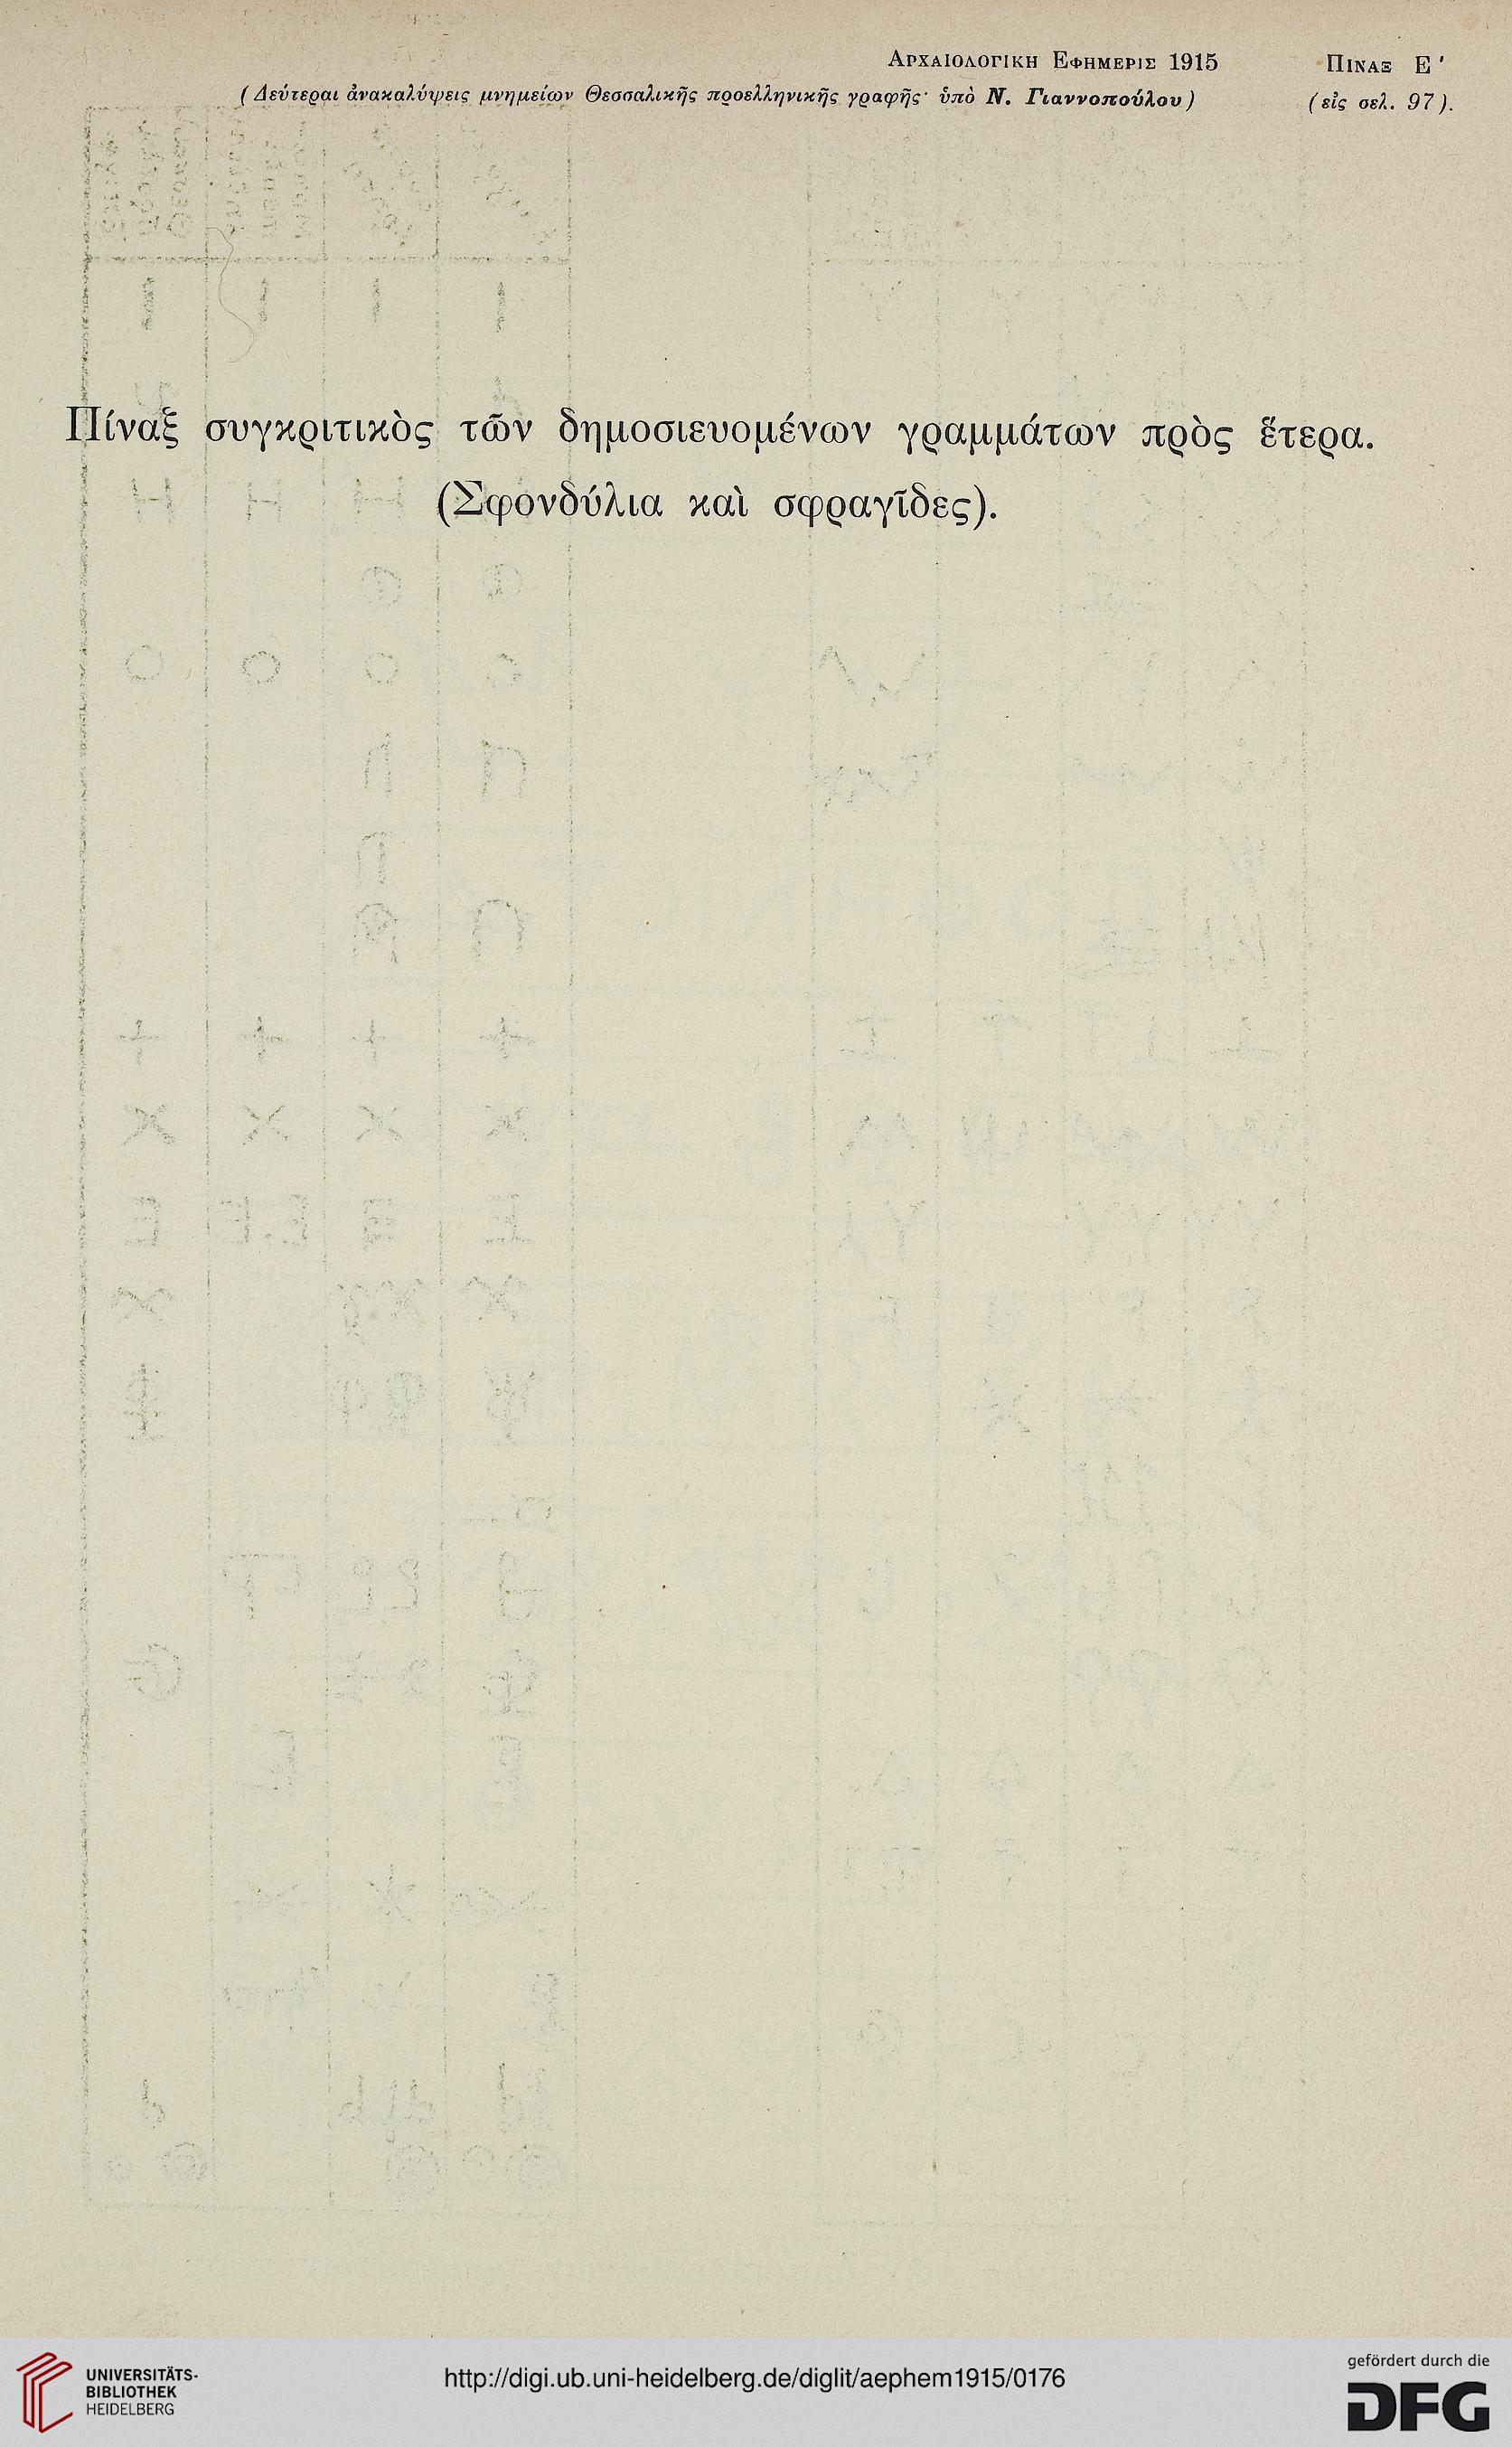 Αρχαιολογικη Εφημερις 1915
Πιναξ Ε'
(Δεύτεραι ἀνακαλύψεις μνημείων Θεσσαλικῆς προελληνικῆς γραφῆς· ὑπὸ Ν. Γιαννοπούλου)
(εἰς σελ. 97).
Πίναξ συγκριτικὸς τῶν δημοσιευομένων γραμμάτων πρὸς ἕτερα.
(Σφονδύλια καὶ σφραγῖδες).
UNIVERSITÄTS-
BIBLIOTHEK
HEIDELBERG
http://digi.ub.uni-heidelberg.de/diglit/aephem1915/0176
gefördert durch die
DFG